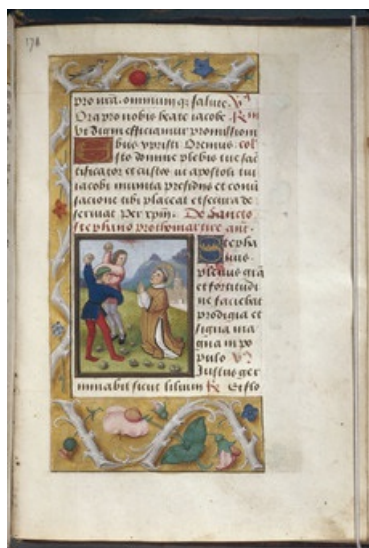 178
pro nra omnium q; salute. V
Ora pro nobis beate iacobe R
Ut digni efficiamur promissioni
bus xpristi Oremus. coll
sto domine plebis tue sanc
tificator et custos ut apostoli tui
iacobi munita presidiis et conu
sacione tibi placeat et secura de
seruiat Per xpm. De sancto
stephano prothomartire ant.
Stepha
nus
plenus gra
et fortitudi
ne faciebat
prodigia et
signa ma
gna in po
pulo V
Justus ger
minabit sicut lilium R Et flo